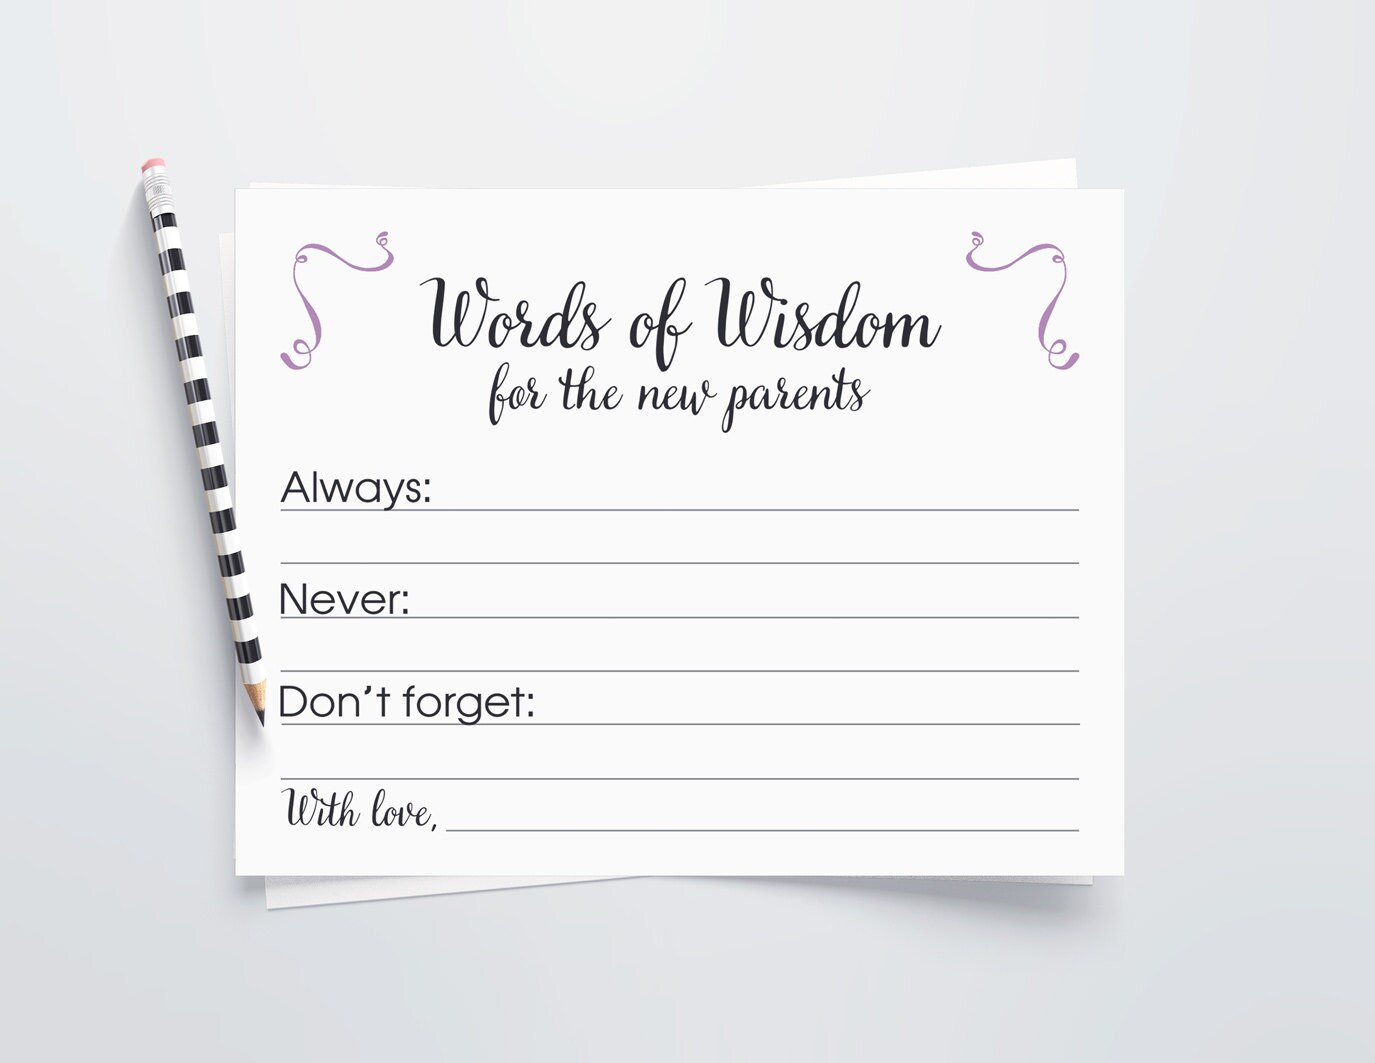 Words of Wisdom
for the new parents
Always:
Never:
Don't forget:
With love,